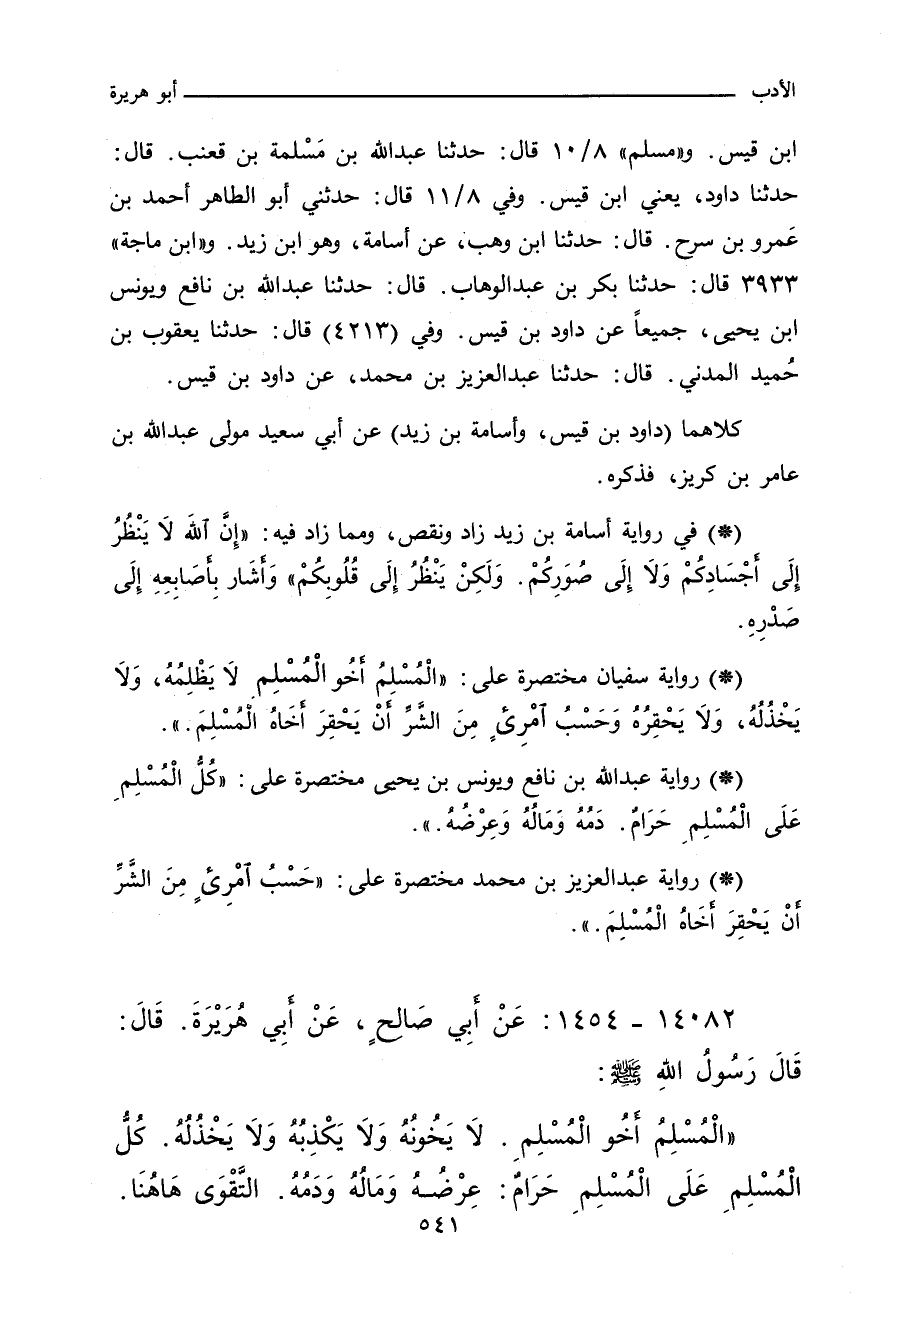 الأدب ــــــــــــــــ أبو هريرة
ابن قيس. و«مسلم» ١٠/٨ قال: حدثنا عبدالله بن مَسْلمة بن قعنب. قال:
حدثنا داود، يعني ابن قيس. وفي ١١/٨ قال: حدثني أبو الطاهر أحمد بن
عَمرو بن سرح. قال: حدثنا ابن وهب، عن أسامة، وهو ابن زيد. و«ابن ماجة»
٣٩٣٣ قال: حدثنا بكر بن عبدالوهاب. قال: حدثنا عبدالله بن نافع ويونس
ابن يحيى، جميعاً عن داود بن قيس. وفي (٤٢١٣) قال: حدثنا يعقوب بن
حُميد المدني. قال: حدثنا عبدالعزيز بن محمد، عن داود بن قيس.
كلاهما (داود بن قيس، وأسامة بن زيد) عن أبي سعيد مولى عبدالله بن
عامر بن كريز، فذكره.
(*) في رواية أسامة بن زيد زاد ونقص، ومما زاد فيه: «إِنَّ ٱللهَ لَا يَنْظُرُ
إِلَى أَجْسَادِكُمْ وَلَا إِلَى صُوَرِكُمْ. وَلَكِنْ يَنْظُرُ إِلَى قُلُوبِكُمْ» وَأَشَار بِأَصَابِعِهِ إِلَى
صَدْرِهِ.
(*) رواية سفيان مختصرة على: «الْمُسْلِمُ أَخُو الْمُسْلِمِ لَا يَظْلِمُهُ، وَلَا
يَخْذُلُهُ، وَلَا يَحْقِرُهُ وَحَسْبُ ٱمْرِئٍ مِنَ الشَّرِّ أَنْ يَحْقِرَ أَخَاهُ الْمُسْلِمَ.».
(*) رواية عبدالله بن نافع ويونس بن يحيى مختصرة على: «كُلُّ الْمُسْلِمِ
عَلَى الْمُسْلِمِ حَرَامٌ. دَمُهُ وَمَالُهُ وَعِرْضُهُ.».
(*) رواية عبدالعزيز بن محمد مختصرة على: «حَسْبُ ٱمْرِئٍ مِنَ الشَّرِّ
أَنْ يَحْقِرَ أَخَاهُ الْمُسْلِمَ.».
١٤٠٨٢ - ١٤٥٤: عَنْ أَبِي صَالِحٍ، عَنْ أَبِي هُرَيْرَةَ. قَالَ:
قَالَ رَسُولُ اللهِ ﷺ:
«الْمُسْلِمُ أَخُو الْمُسْلِمِ. لَا يَخُونُهُ وَلَا يَكْذِبُهُ وَلَا يَخْذُلُهُ. كُلُّ
الْمُسْلِمِ عَلَى الْمُسْلِمِ حَرَامٌ: عِرْضُهُ وَمَالُهُ وَدَمُهُ. التَّقْوَى هَاهُنَا.
٥٤١